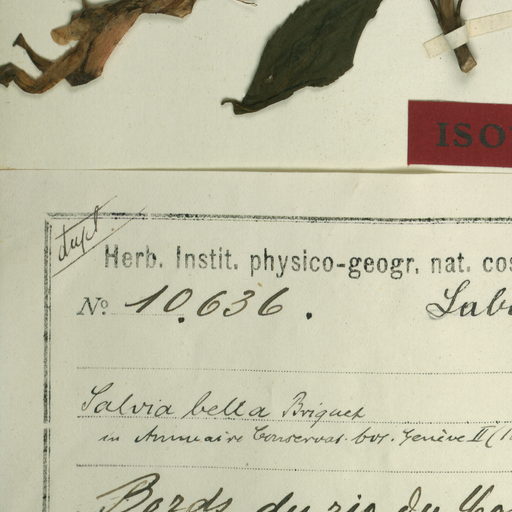 ISO
dupl.
Herb. Instit. physico-geogr. nat. cos
No 10.636. Lab
Salvia bella Briquet
in Annuaire Conservat. bot. Genève II (1
Bords du rio du